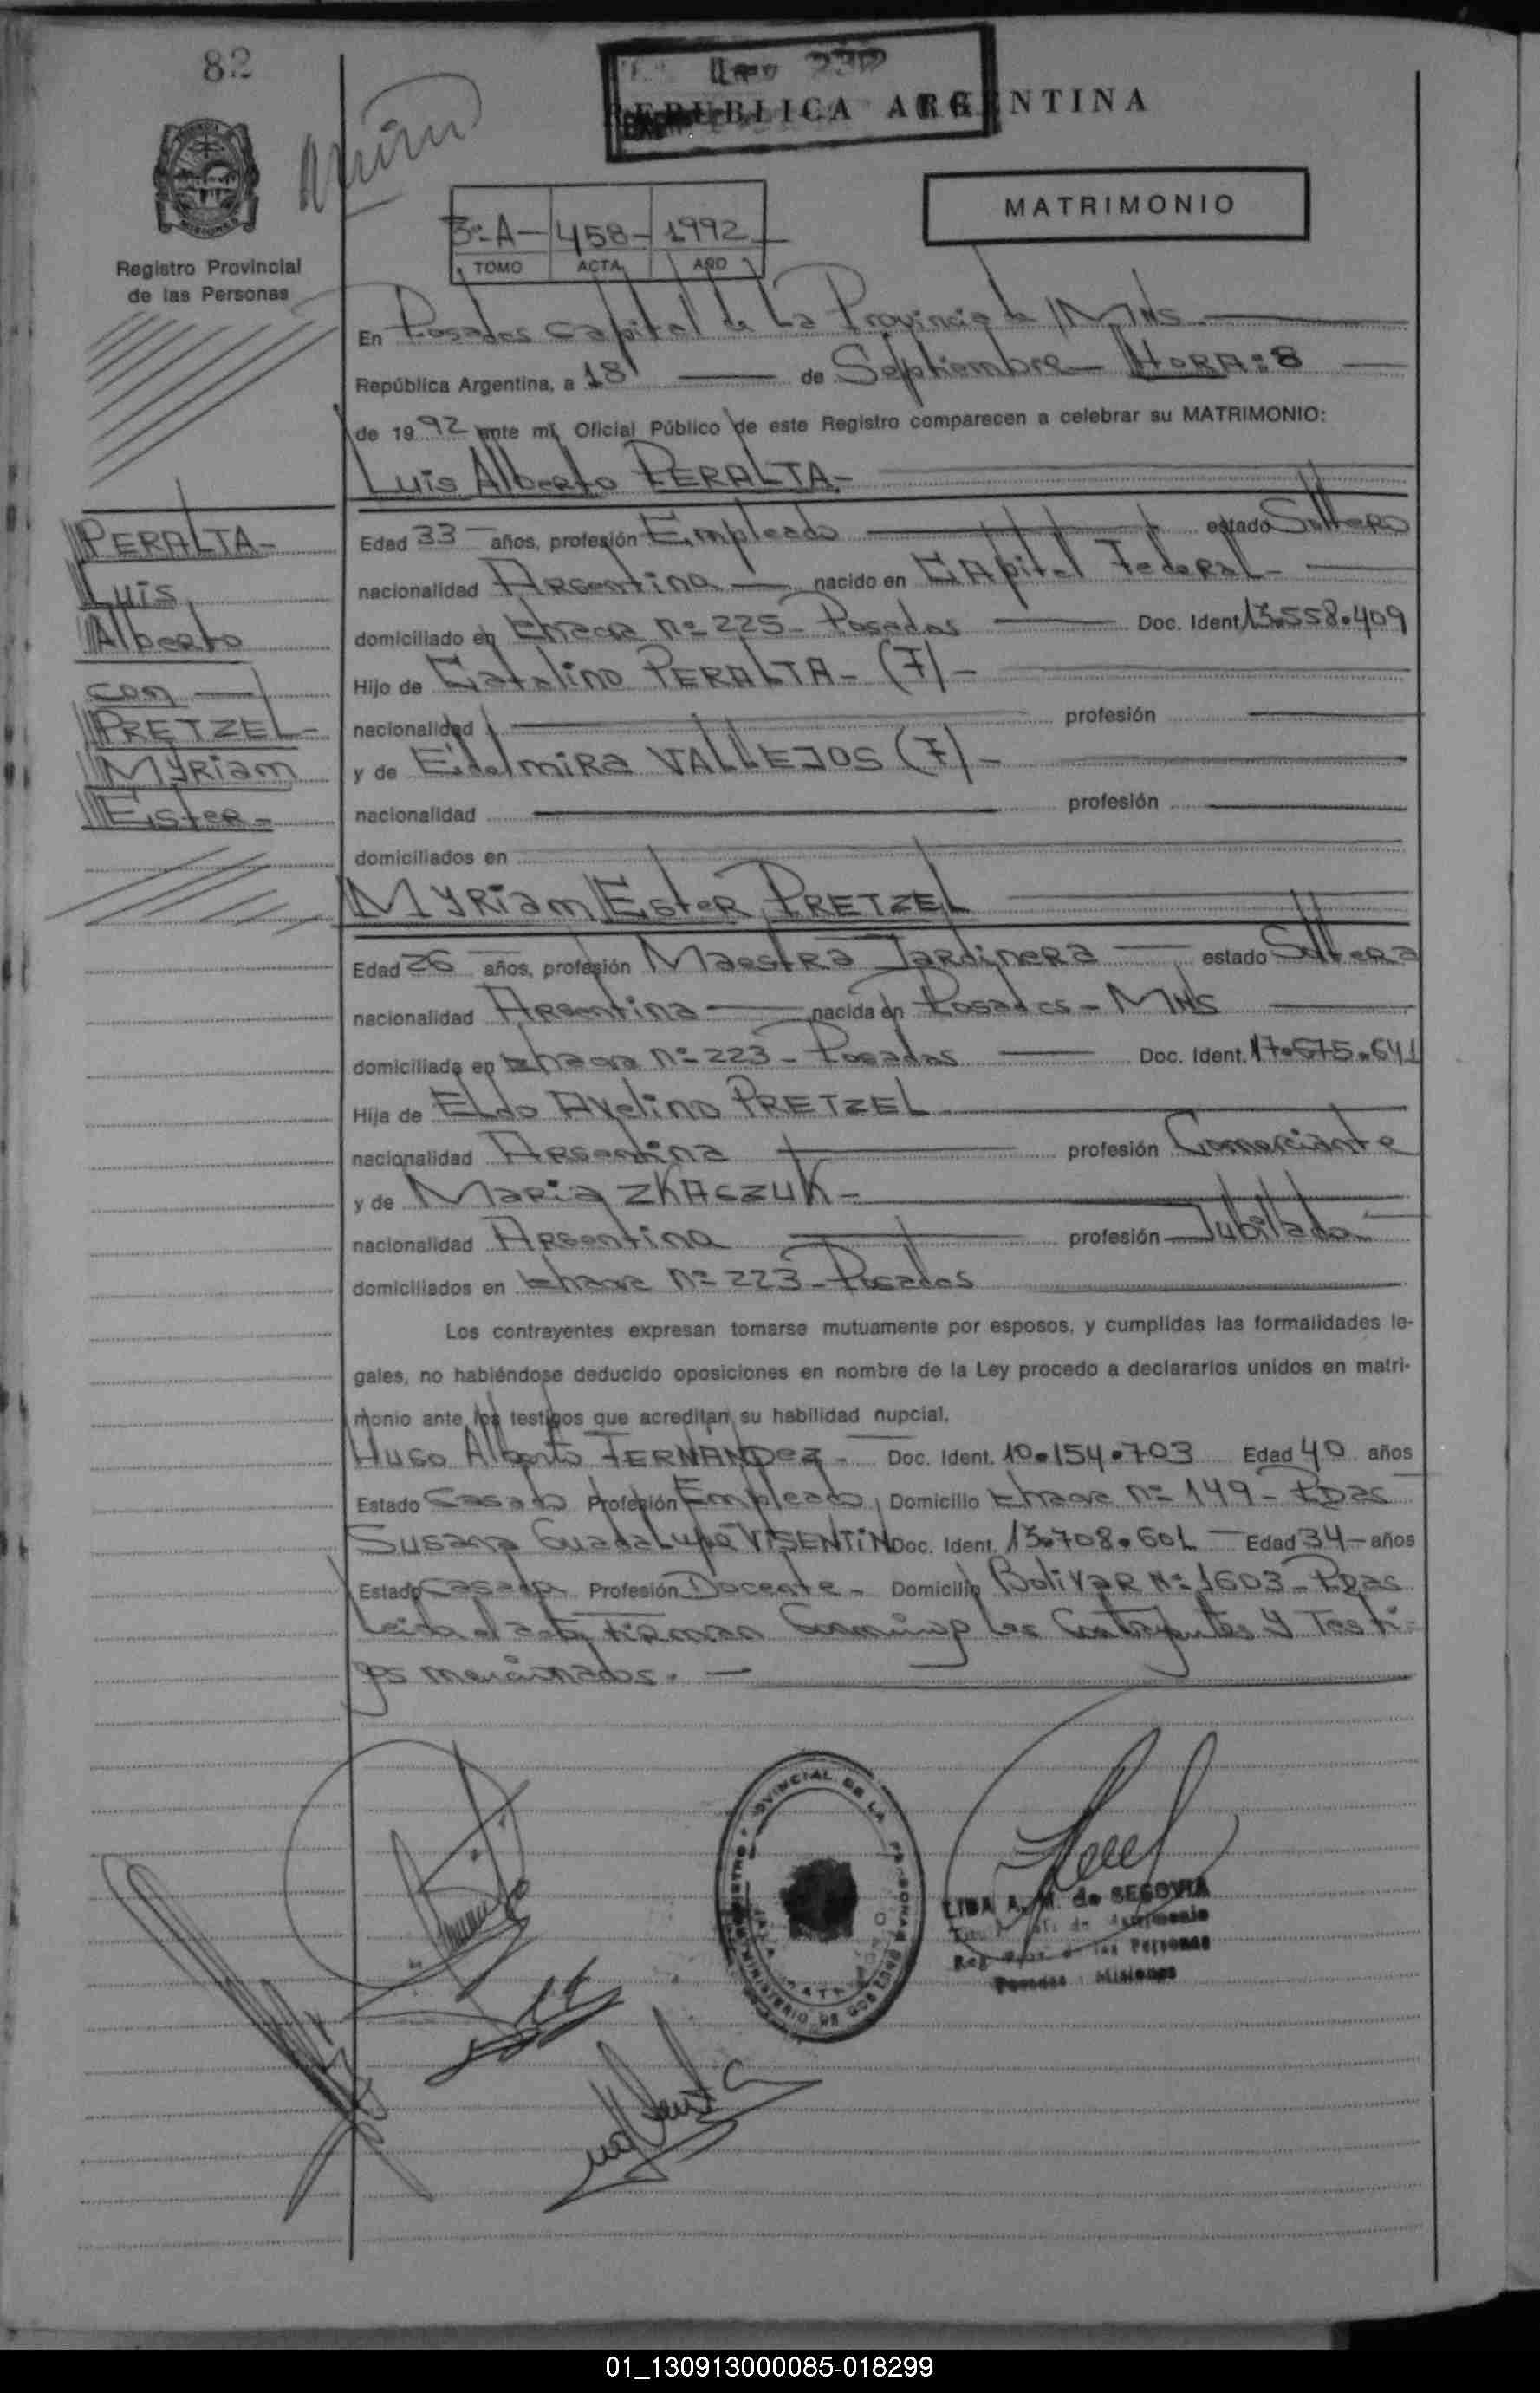 82
REPUBLICA ARGENTINA
MATRIMONIO
3º-A- 458- 1992
TOMO ACTA AÑO
Registro Provincial
de las Personas
En Posadas Capital de La Provincia de MNS
República Argentina, a 18 de Septiembre HORA: 8
de 1992 ante mí, Oficial Público de este Registro comparecen a celebrar su MATRIMONIO:
Luis Alberto PERALTA-
PERALTA-
Luis
Alberto
con
PRETZEL-
MYRiam
Ester-
Edad 33 años, profesión Empleado estado Soltero
nacionalidad Argentina nacido en CApital Federal-
domiciliado en Chacra Nº 225- Posadas Doc. Ident 13.558.409
Hijo de Catalino PERALTA- (F)-
nacionalidad profesión
y de Edelmira VALLEJOS (F)-
nacionalidad profesión
domiciliados en
MYRiam Ester PRETZEL
Edad 26 años, profesión Maestra Jardinera estado Soltera
nacionalidad Argentina nacida en Posadas- MNS
domiciliada en Chacra Nº 223- Posadas Doc. Ident. 17.675.641
Hija de ELdo Avelino PRETZEL
nacionalidad Argentina profesión Comerciante
y de Maria ZKACZUK-
nacionalidad Argentina profesión Jubilada
domiciliados en Chacra Nº 223- Posadas
Los contrayentes expresan tomarse mutuamente por esposos, y cumplidas las formalidades le-
gales, no habiéndose deducido oposiciones en nombre de la Ley procedo a declararlos unidos en matri-
monio ante los testigos que acreditan su habilidad nupcial.
Hugo Alberto FERNANDEZ- Doc. Ident. 10.154.703 Edad 40 años
Estado Casado Profesión Empleado Domicilio Chacra Nº 149- Pdas
Susana Guadalupe VISENTIN Doc. Ident. 13.708.601 Edad 34 años
Estado Casada Profesión Docente- Domicilio Bolivar Nº 1603- Pdas
Leida el acta firman Conmigo los Contrayentes y Testi-
gos mencionados.-
LIDA A. M. de SEGOVIA
Posadas Misiones
01_130913000085-018299